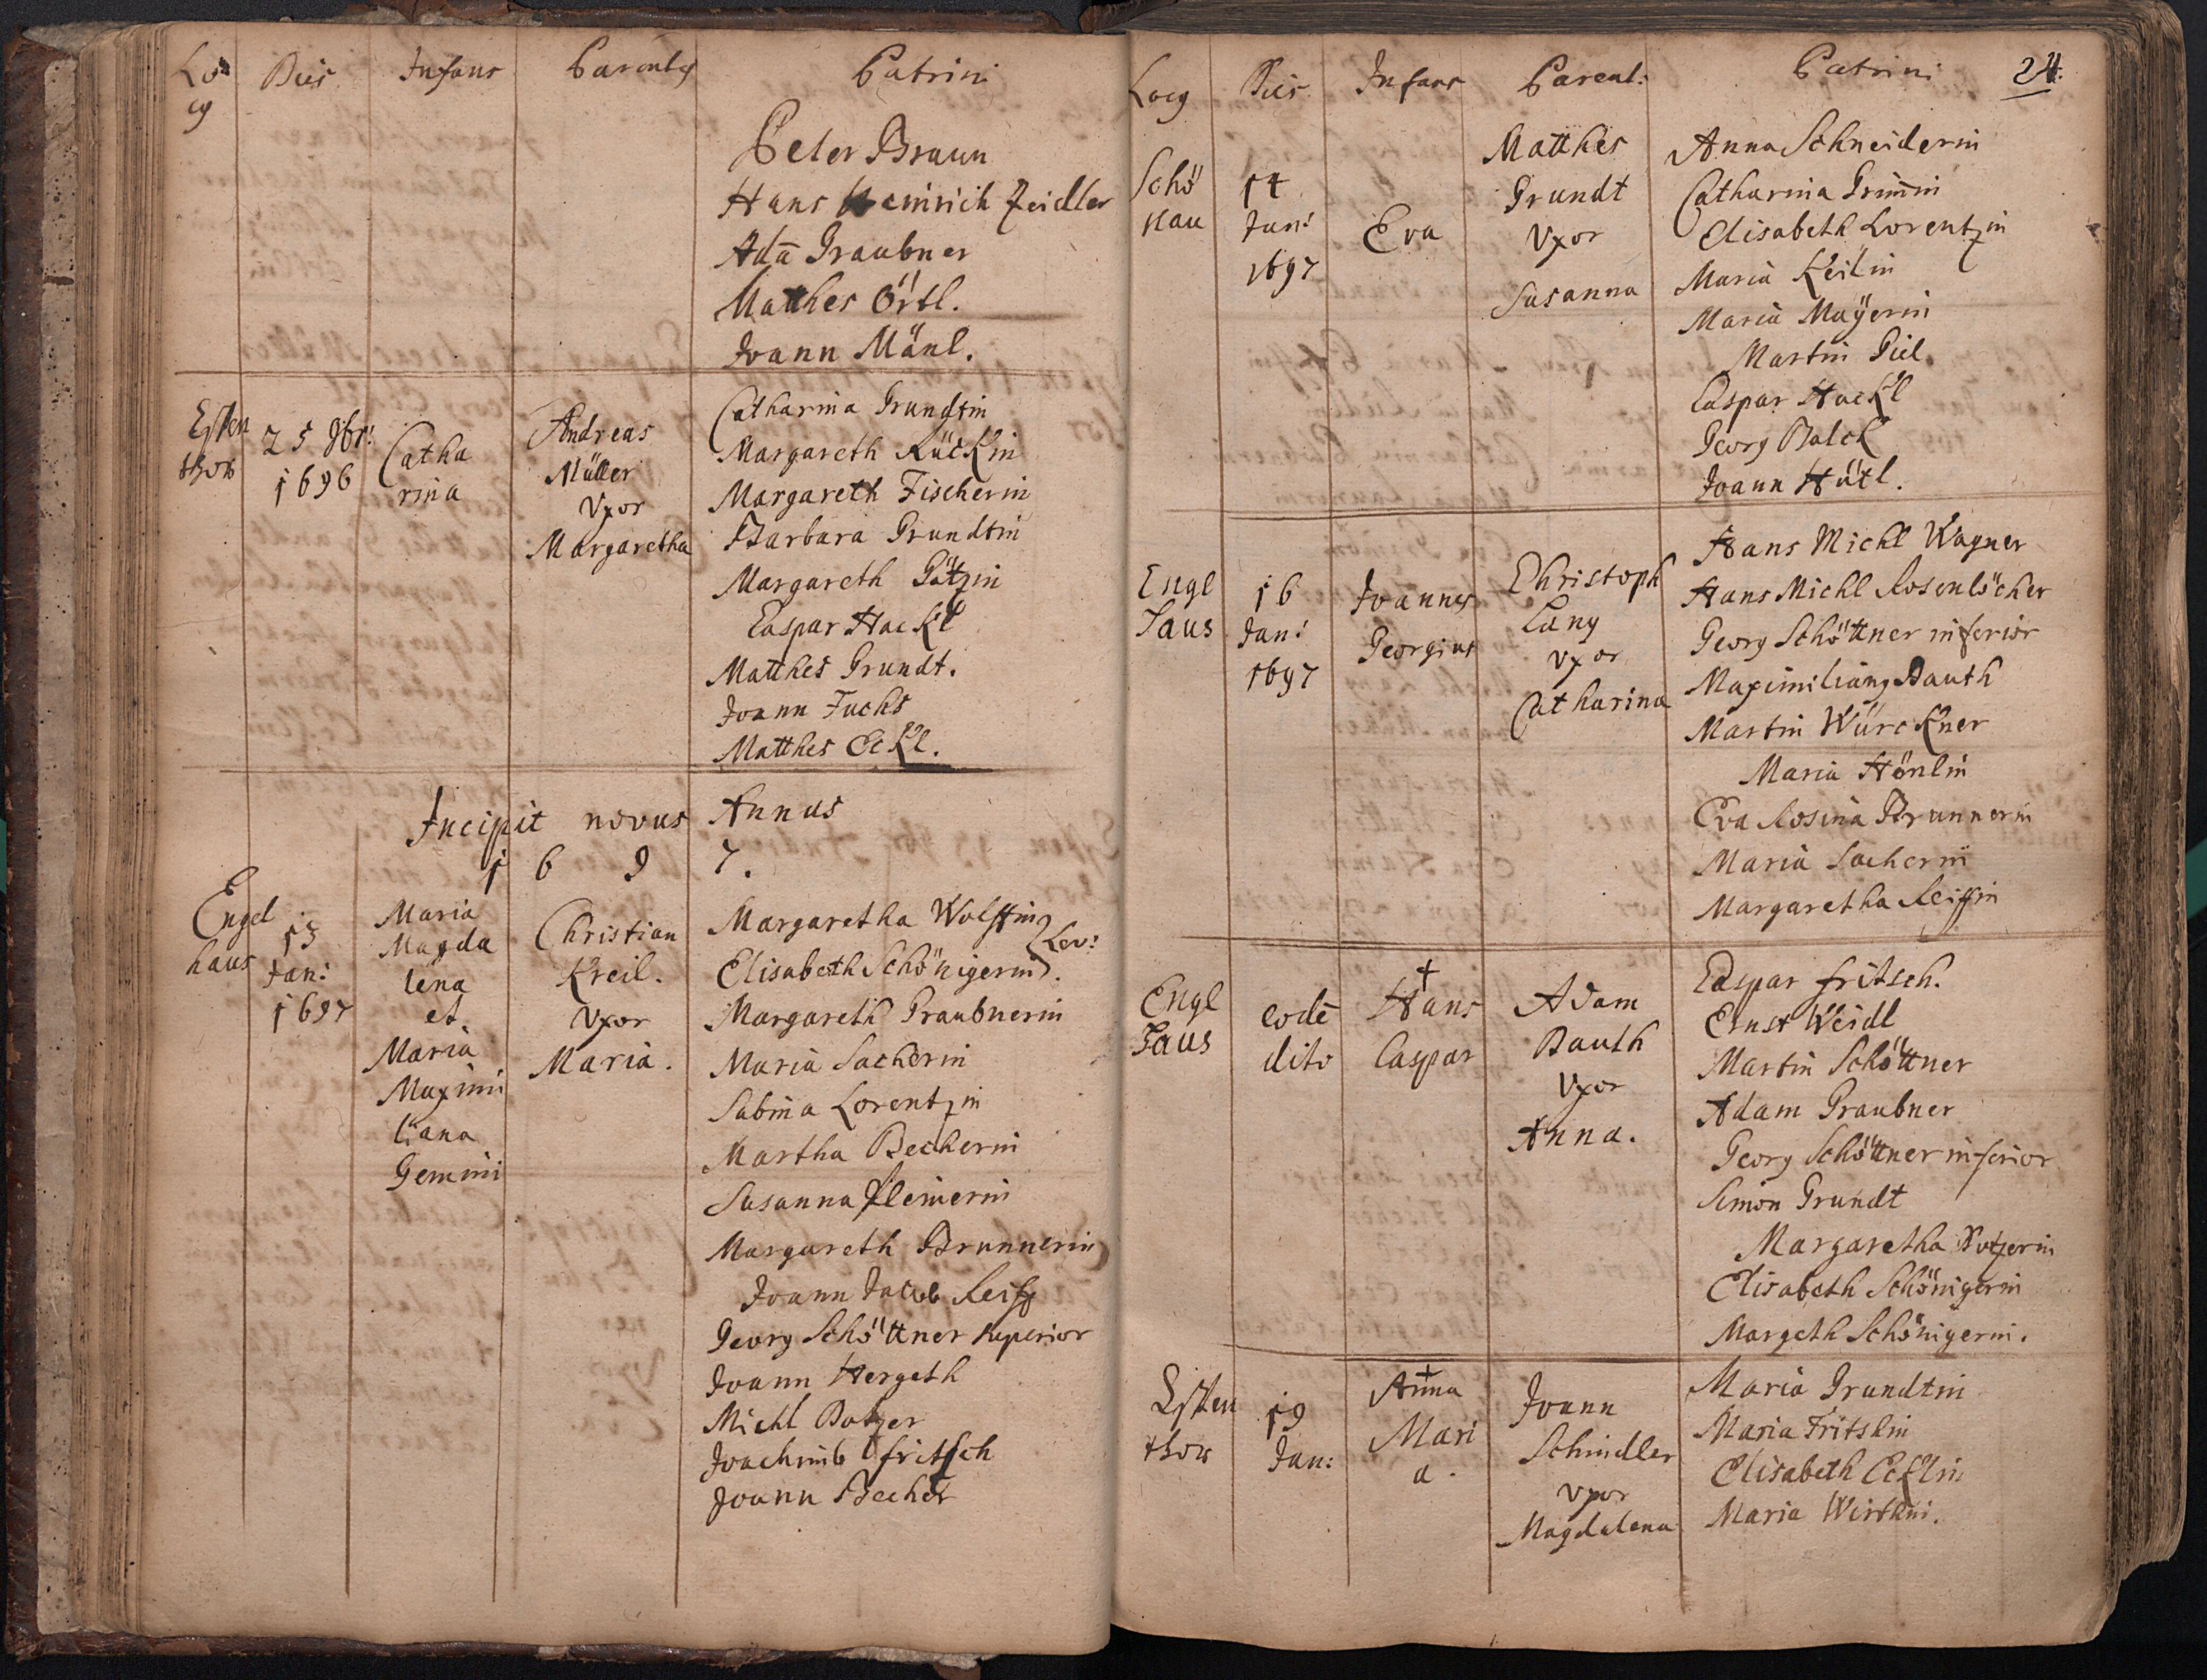 Locus Dies Infans Parentes Patrini
Peter Braun
Hans Heinrich Zeidler
Adā Graubner
Matthes Örtl.
Joann Mänl.
Esten thor
25 9br: 1696
Catha rina
Andreas Müller Vxor Margaretha
Catharina Grundtin
Margareth Rückin
Margareth Fischerin
Barbara Grundtin
Margareth Götzin
Caspar Hackl
Matthes Grundt.
Joann Fuchs
Matthes Eckl.
Incipit novus Annus
1 6 9 7.
Engel haus
13 Jan: 1697
Maria Magda lena et Maria Maximi liana Gemini
Christian Kreil. Vxor Maria.
Margaretha Wolffin
Elisabeth Schönigerin Lev:
Margareth Graubnerin
Maria Sacherin
Sabina Lorentzin
Martha Becherin
Susanna
Margareth Brunnerin
Joann Jacob Reiff
Georg Schöttner superior
Joann Hergeth
Michl
Joachimb fritsch
Joann Becher
Locus Dies Infans Parent: Patrini 24.
Schö nau
14 Jan: 1697
Eva
Matthes Grundt Vxor Susanna
Anna Schneiderin
Catharina Grim̄in
Elisabeth Lorentzin
Maria Keilin
Maria Maÿerin
Martin Giel
Caspar Hackl
Georg Balck
Joann Hütl.
Engl Haus
16 Jan: 1697
Joannes Georgius
Christoph Lang vxor Catharina
Hans Michl Wagner
Hans Michl Rosenlöcher
Georg Schöttner inferior
Maximilianus Bauth
Martin Würckner
Maria Hönlin
Eva Rosina Brunnerin
Maria Sacherin
Margaretha Reiffin
Engl Haus
eodē dito
† Hans Caspar
Adam Bauth Vxor Anna.
Caspar fritsch.
Ernst Weidl
Martin Schöttner
Adam Graubner
Georg Schöttner inferior
Simon Grundt
Margaretha
Elisabeth Schönigerin
Margeth Schönigerin.
Esten thor
19 Jan:
† Anna Mari a.
Joann Schindler vxor Magdalena
Maria Grundtin
Maria Fritshin
Elisabeth Ecklin
Maria Wirthin.